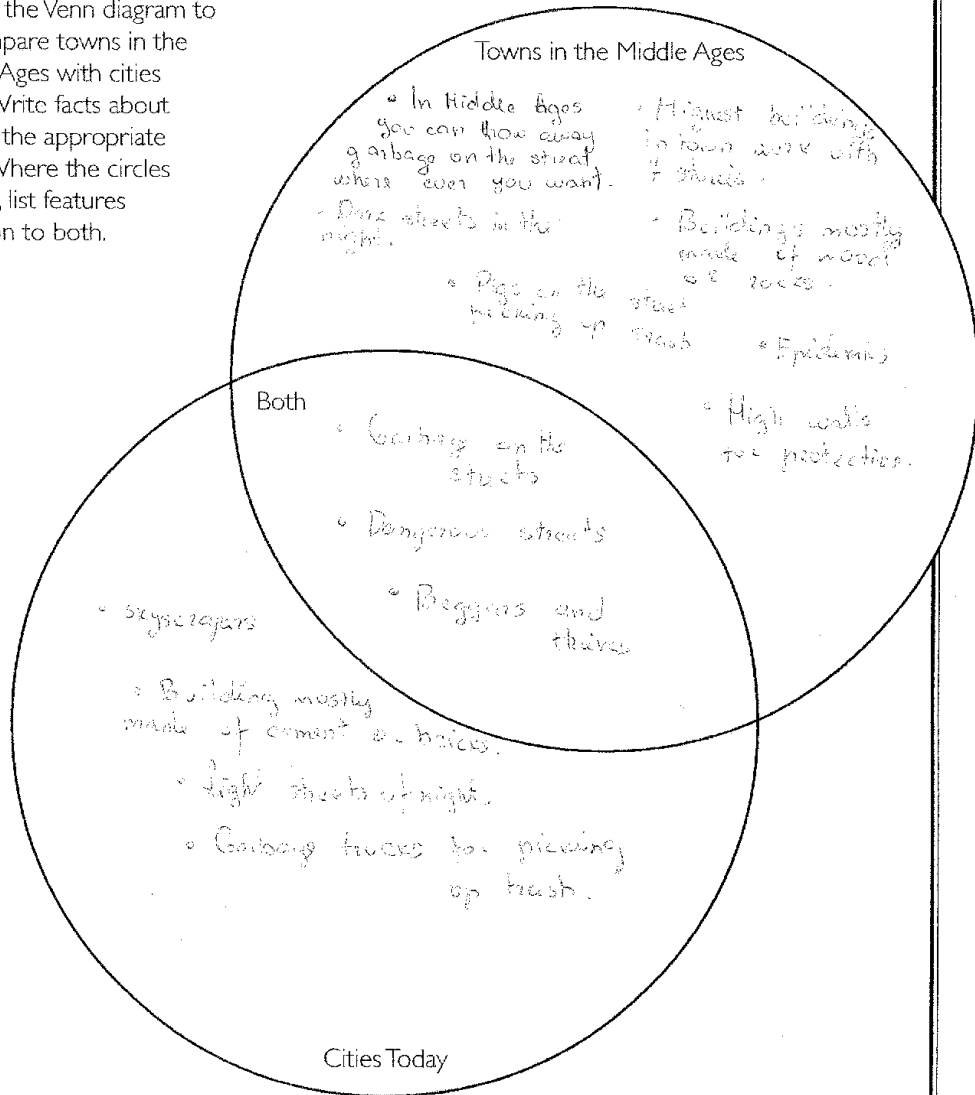 the Venn diagram to
pare towns in the
Ages with cities
Write facts about
the appropriate
Where the circles
, list features
n to both.
Towns in the Middle Ages
• In Middle Ages
you can thow away
garbage on the streat
where ever you want.
• Higuest buildings
in town were with
4 
• Dark streets in the
night.
• Buildings mostly
made of wood
or rocks.
• Pigs on the street
picking up trash
• Epidemis
• High walls
for protection.
Both
• Garbag on the
streets
• Dangerous streats
• Beggars and
theives
• skyscrapars
• Building mostly
made of cement or bricks.
• light streets at night.
• Garbag trucks for picking
up trash.
Cities Today